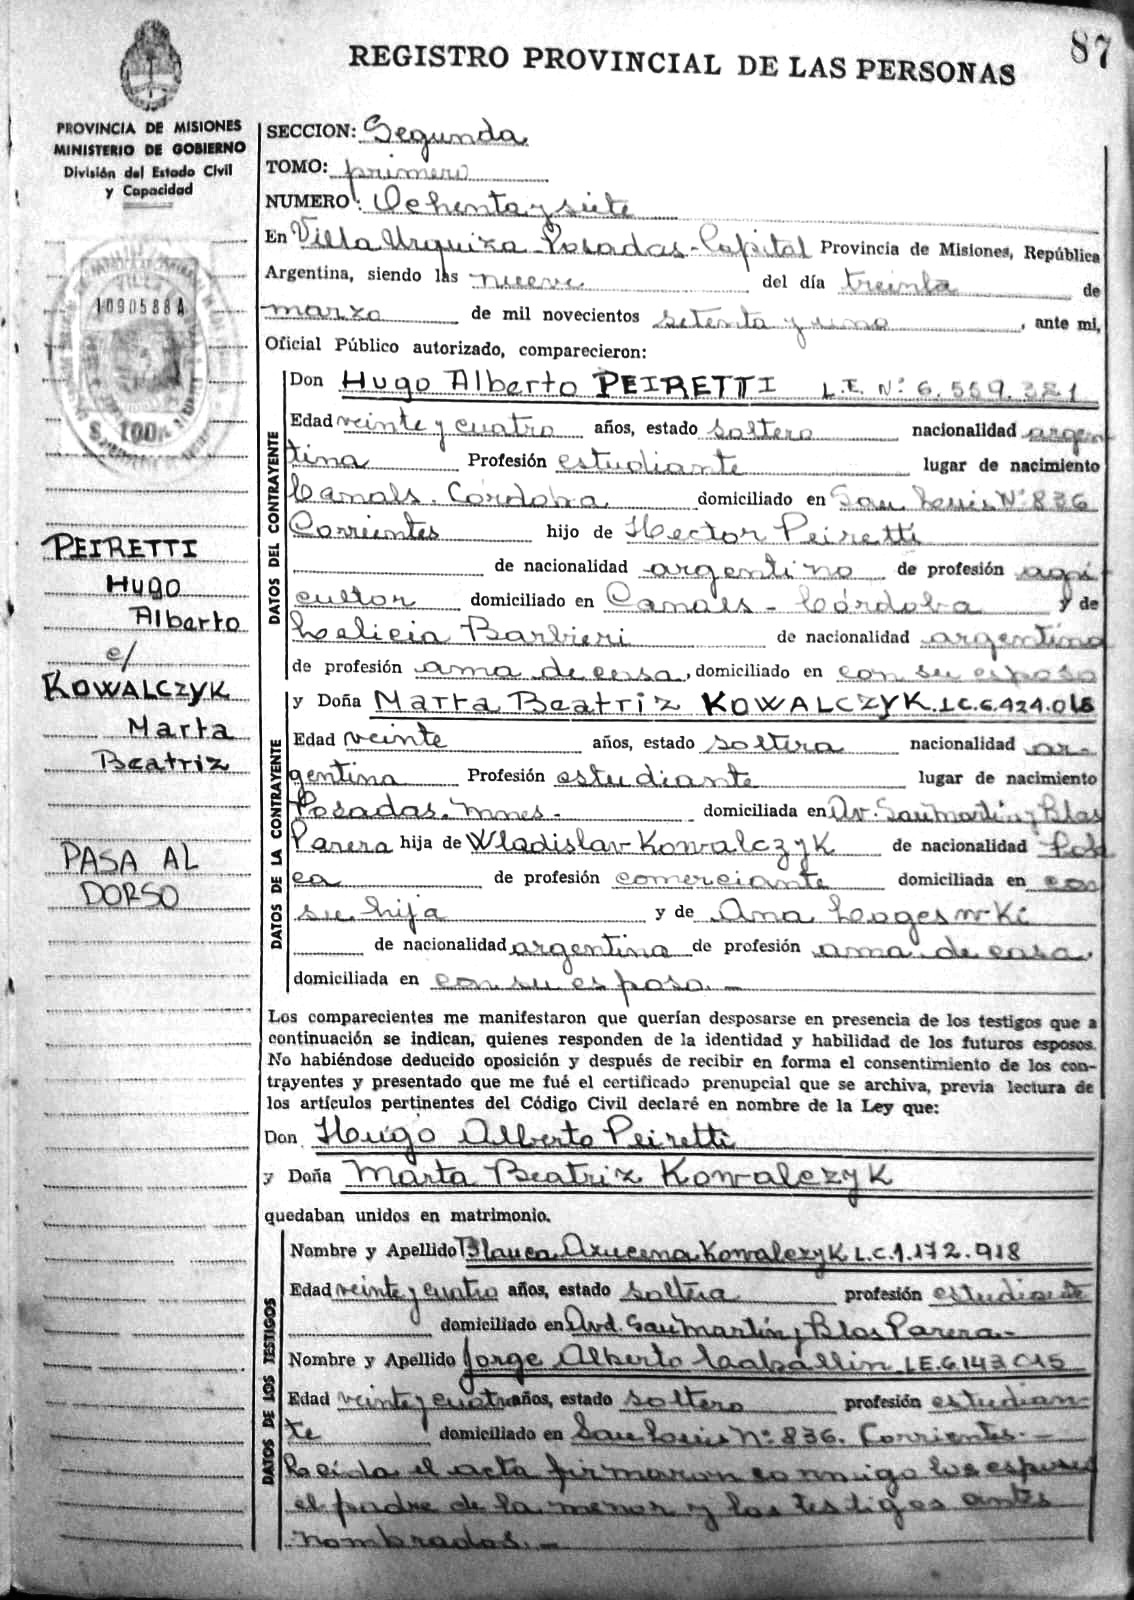 REGISTRO PROVINCIAL DE LAS PERSONAS
87
PROVINCIA DE MISIONES
MINISTERIO DE GOBIERNO
División del Estado Civil
y Capacidad
1090588A
$ 100
PEIRETTI
Hugo
Alberto
c/
KOWALCZYK
Marta
Beatriz
PASA AL
DORSO
SECCION: Segunda
TOMO: primero
NUMERO: Ochenta y siete
En Villa Urquiza Posadas-Capital Provincia de Misiones, República
Argentina, siendo las nueve del día treinta de
marzo de mil novecientos setenta y uno, ante mi,
Oficial Público autorizado, comparecieron:
DATOS DEL CONTRAYENTE
Don Hugo Alberto PEIRETTI L.E. Nº 6.559.321
Edad veinte y cuatro años, estado soltero nacionalidad argen
tina Profesión estudiante lugar de nacimiento
Canals. Córdoba domiciliado en San Luis Nº 836
Corrientes hijo de Hector Peiretti
de nacionalidad argentino de profesión agri
cultor domiciliado en Canals - Córdoba y de
Barbieri de nacionalidad argentina
de profesión ama de casa, domiciliado en con su esposo
DATOS DE LA CONTRAYENTE
y Doña Marta Beatriz KOWALCZYK. L.C. 6.424.018
Edad veinte años, estado soltera nacionalidad ar-
gentina Profesión estudiante lugar de nacimiento
Posadas. Mnes. domiciliada en Av. San Martin y Blas
Parera hija de Wladislav Kowalczyk de nacionalidad Pola
ca de profesión comerciante domiciliada en con
su hija y de Ana
de nacionalidad argentina de profesión ama de casa.
domiciliada en con su esposo. -
Los comparecientes me manifestaron que querían desposarse en presencia de los testigos que a
continuación se indican, quienes responden de la identidad y habilidad de los futuros esposos.
No habiéndose deducido oposición y después de recibir en forma el consentimiento de los con-
trayentes y presentado que me fué el certificado prenupcial que se archiva, previa lectura de
los artículos pertinentes del Código Civil declaré en nombre de la Ley que:
Don Hugo Alberto Peiretti
y Doña Marta Beatriz Kowalczyk
quedaban unidos en matrimonio.
DATOS DE LOS TESTIGOS
Nombre y Apellido Blanca Azucena Kowalczyk L.C. 1.172.918
Edad veinte y cuatro años, estado soltera profesión estudiante
domiciliado en Avd. San Martín y Blas Parera -
Nombre y Apellido Jorge Alberto L.E. 6.143.015
Edad veinte y cuatro años, estado soltero profesión estudian-
te domiciliado en San Luis Nº 836. Corrientes. -
Leída el acta firmaron conmigo los esposos
el padre de la menor y los testigos antes
nombrados. -